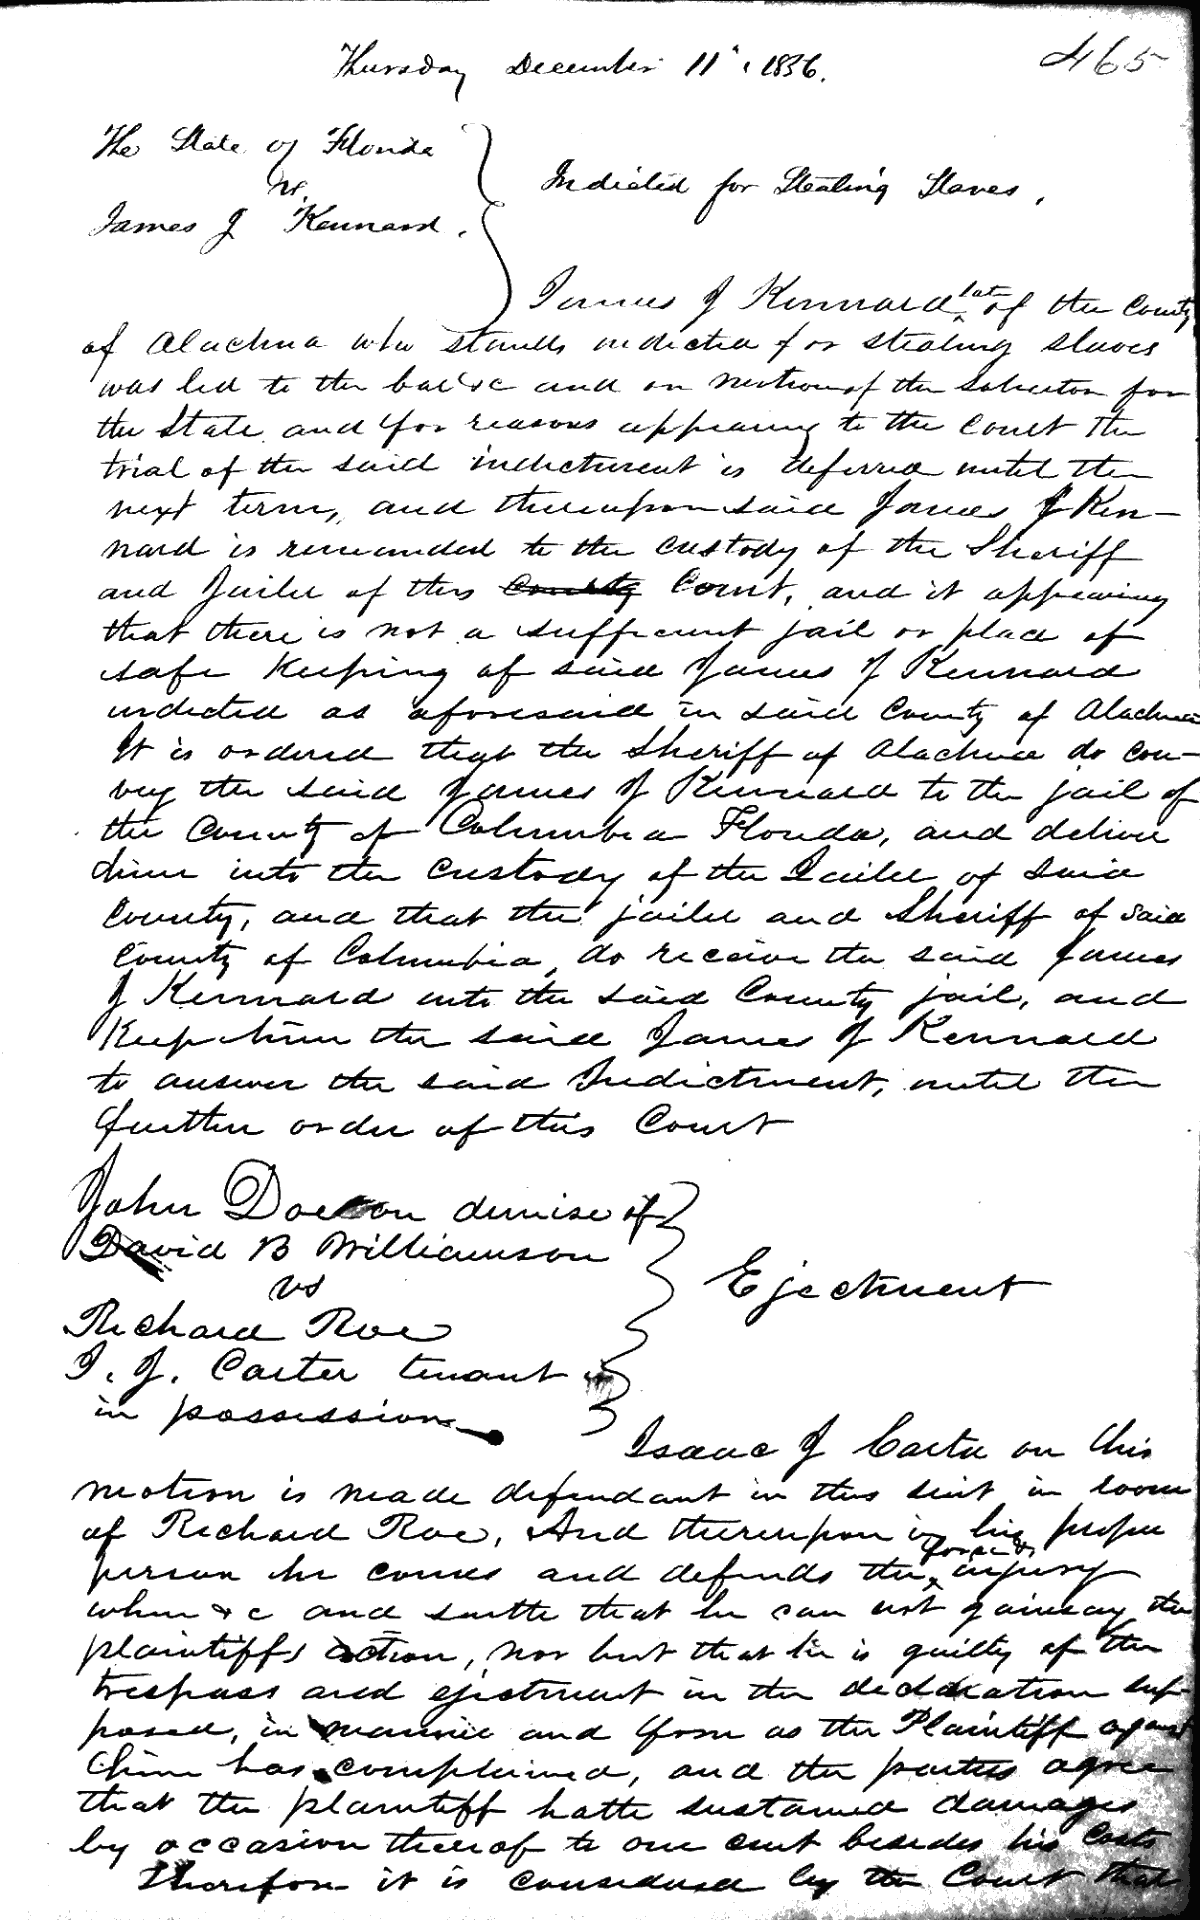 Thursday December 11th, 1856.
465
The State of Florida
vs.
James J Kennard.
Indicted for Stealing Slaves.
James J Kennard late of the County
of Alachua who stands indicted for stealing slaves
was led to the bar &c and on motion of the Solicitor for
the State and for reasons appearing to the Court the
trial of the said indictment is deferred until the
next term, and thereupon said James J Ken-
nard is remanded to the custody of the Sheriff
and Jailer of this County Court, and it appearing
that there is not a sufficient jail or place of
safe keeping of said James J Kennard
indicted as aforesaid in said County of Alachua
It is ordered that the Sheriff of Alachua do con-
vey the said James J Kennard to the jail of
the County of Columbia Florida, and deliver
him into the custody of the Jailer of said
County, and that the jailer and Sheriff of said
County of Columbia, do receive the said James
J Kennard into the said County jail, and
Keep him the said James J Kennard
to answer the said Indictment, until the
further order of this Court
John Doe on demise of
David B Williamson
vs
Richard Roe
I. J. Carter tenant
in possession
Ejectment
Isaac J Carter on his
motion is made defendant in this suit in room
of Richard Roe, And thereupon in his proper
person he comes and defends the force & injury
when &c and saith that he can not gainsay the
plaintiffs action, nor but that he is guilty of the
trespass and ejectment in the declaration sup-
posed, in manner and form as the Plaintiff against
him has complained, and the parties agree
that the plaintiff hath sustained damages
by occasion thereof to one cent besides his costs
Therefore it is considered by the Court that